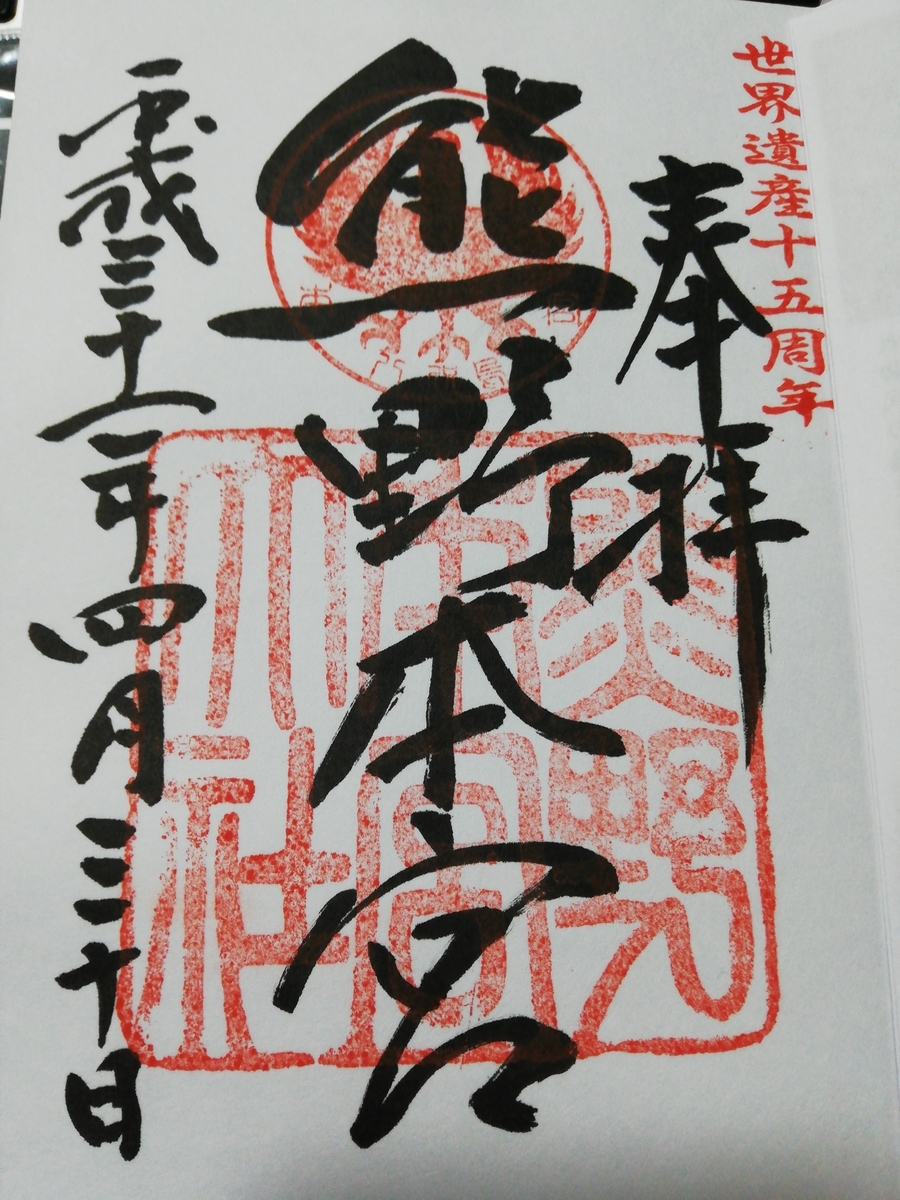 世界遺産十五周年
奉拝
熊野本宮
平成三十一年四月三十日
熊野
本宮
大社